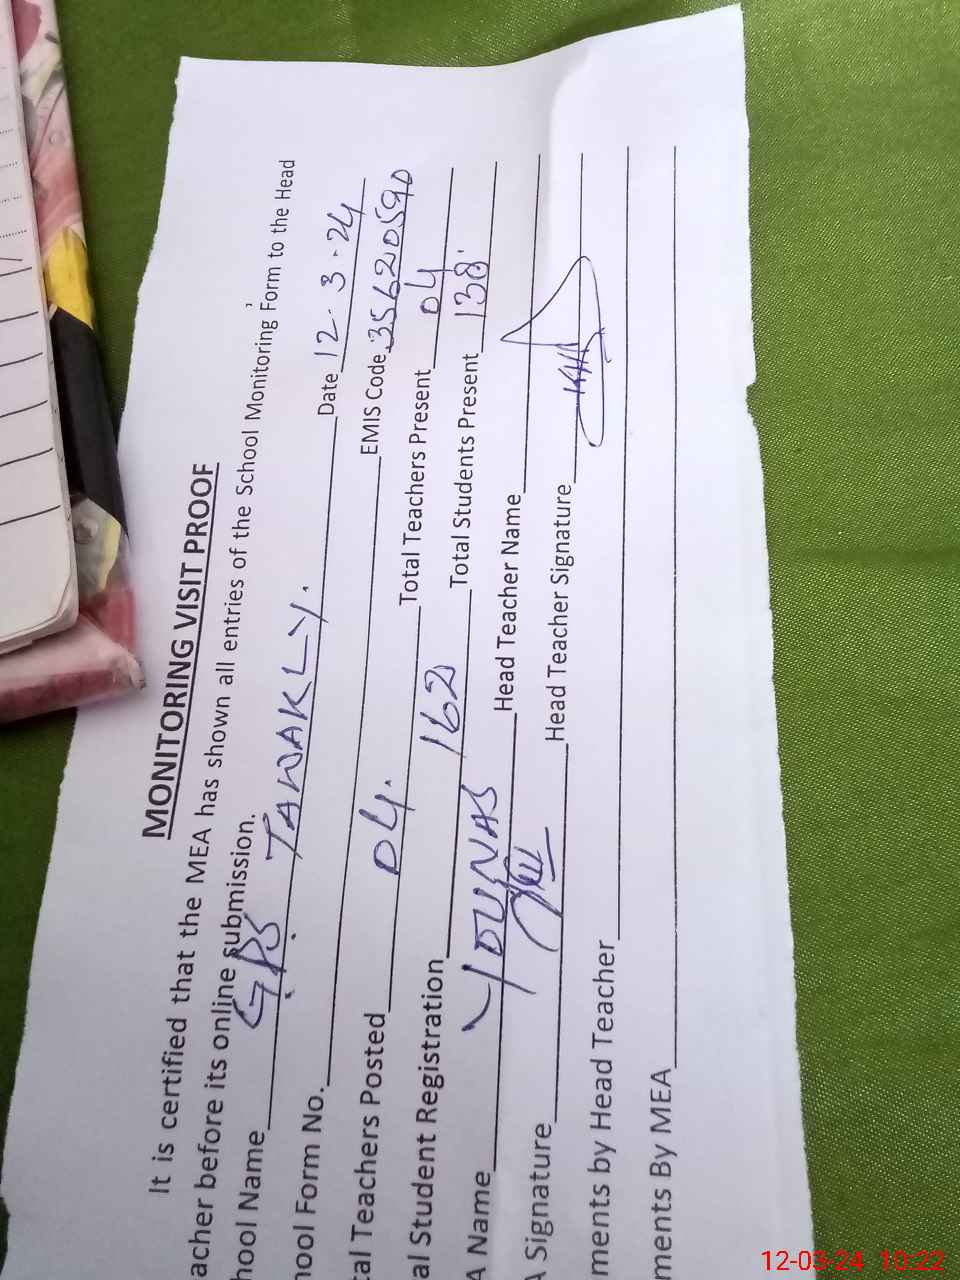 MONITORING VISIT PROOF
It is certified that the MEA has shown all entries of the School Monitoring Form to the Head
acher before its online submission.
hool Name GPS TAWAKLY. Date 12.3.24
hool Form No. EMIS Code 35620590
tal Teachers Posted 04. Total Teachers Present 04
al Student Registration 162 Total Students Present 138
A Name YOUNAS Head Teacher Name
A Signature Head Teacher Signature
ments by Head Teacher
ments By MEA
12-03-24 10:22